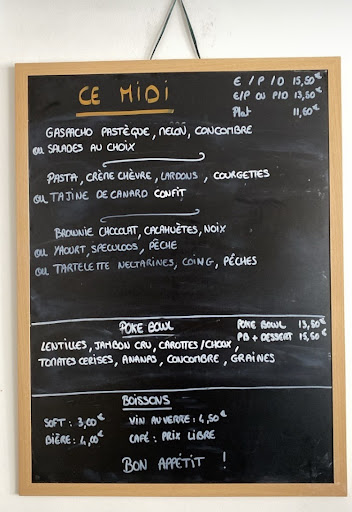 CE MIDI
E / P / D 15,50€
E/P OU P/D 13,50€
Plat 11,60€
GASPACHO PASTÈQUE, MELON, CONCOMBRE
OU SALADES AU CHOIX
PASTA, CRÈME CHÈVRE, LARDONS, COURGETTES
OU TAJINE DE CANARD CONFIT
BROWNIE CHOCOLAT, CACAHUÈTES, NOIX
OU YAOURT, SPECULOOS, PÊCHE
OU TARTELETTE NECTARINES, COING, PÊCHES
POKE BOWL
POKE BOWL 13,50€
PB + DESSERT 15,50€
LENTILLES, JAMBON CRU, CAROTTES/CHOUX,
TOMATES CERISES, ANANAS, CONCOMBRE, GRAINES
BOISSONS
SOFT : 3,00€ VIN AU VERRE : 4,50€
BIÈRE : 4,00€ CAFÉ : PRIX LIBRE
BON APPÉTIT !